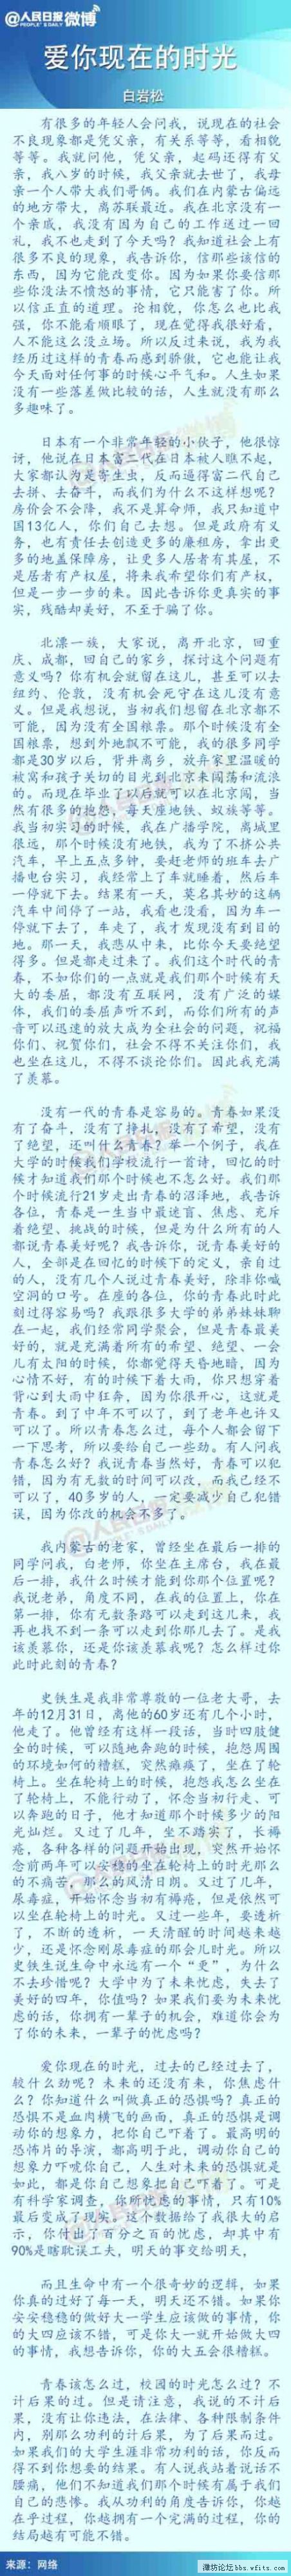 @人民日报 微博
PEOPLE'S DAILY
爱你现在的时光
白岩松
有很多的年轻人会问我，说现在的社会
不良现象都是凭父亲，有关系等等，看相貌
等等。我就问他，凭父亲，起码还得有父
亲，我八岁的时候，我父亲就去世了，我母
亲一个人带大我们哥俩。我们在内蒙古偏远
的地方带大，离苏联最近。我在北京没有一
个亲戚，我没有因为自己的工作送过一回
礼，我不也走到了今天吗？我知道社会上有
很多不良的现象，我告诉你，信那些该信的
东西，因为它能改变你。因为如果你要信那
些你没法不愤怒的事情，它只能害了你。所
以信正直的道理。论相貌，你怎么也比我
强，你不能看顺眼了，现在觉得我很好看，
人不能这么没立场。所以反过来说，我为我
经历过这样的青春而感到骄傲，它也能让我
今天面对任何事的时候心平气和。人生如果
没有一些落差做比较的话，人生就没有那么
多趣味了。
日本有一个非常年轻的小伙子，他很惊
讶，他说在日本富二代在日本被人瞧不起，
大家都认为是寄生虫，反而逼得富二代自己
去拼、去奋斗，而我们为什么不这样想呢？
房价会不会降，我不是算命师，我只知道中
国13亿人，你们自己去想。但是政府有义
务，也有责任去创造更多的廉租房，拿出更
多的地盖保障房，让更多人居者有其屋，不
是居者有产权屋，将来我希望你们有产权，
但是一步一步的来。因此告诉你更真实的事
实，残酷却美好，不至于骗了你。
北漂一族，大家说，离开北京，回重
庆、成都，回自己的家乡，探讨这个问题有
意义吗？你有机会就留在这儿，甚至可以去
纽约、伦敦，没有机会死守在这儿没有意
义。但是我想说，当初我们想留在北京都不
可能，因为没有全国粮票。那个时候没有全
国粮票，想到外地飘不可能，我的很多同学
都是30岁以后，背井离乡，放弃家里温暖的
被窝和孩子关切的目光到北京来闯荡和流浪
的。而现在毕业了以后就可以在北京闯，当
然有很多的抱怨，每天座地铁、蚁族等等。
我当初实习的时候，我在广播学院，离城里
很远，那个时候没有地铁，我为了不挤公共
汽车，早上五点多钟，要赶老师的班车去广
播电台实习，我经常上了车就睡着，然后车
一停就下去。结果有一天，莫名其妙的这辆
汽车中间停了一站，我看也没看，因为车一
停就下去了，车走了，我才发现没有到目的
地。那一天，我悲从中来，比你今天要绝望
得多。但是都走过来了。我们这个时代的青
春，不如你们的一点就是我们那个时候有天
大的委屈，都没有互联网，没有广泛的媒
体，我们的委屈声听不到，而你们所有的声
音可以迅速的放大成为全社会的问题，祝福
你们、祝贺你们，社会不得不关注你们，我
也坐在这儿，不得不谈论你们。因此我充满
了羡慕。
没有一代的青春是容易的。青春如果没
有了奋斗，没有了挣扎，没有了希望，没有
了绝望，还叫什么青春？举一个例子，我在
大学的时候我们学校流行一首诗，回忆的时
候才知道我们那个时候也不怎么好。我们那
个时候流行21岁走出青春的沼泽地，我告诉
各位，青春是一生当中最迷盲、焦虑、充斥
着绝望、挑战的时候，但是为什么所有的人
都说青春美好呢？我告诉你，说青春美好的
人，全部是在回忆的时候下的定义，亲自过
的人，没有几个人说过青春美好，除非你喊
空洞的口号。在座的各位，你的青春此时此
刻过得容易吗？我跟很多大学的弟弟妹妹聊
在一起，我们经常同学聚会，但是青春最美
好的，就是充满着所有的希望、绝望、一会
儿有太阳的时候，你都觉得天昏地暗，因为
心情不好，有的时候下着大雨，你只想穿着
背心到大雨中狂奔，因为你很开心，这就是
青春。到了中年不可以了，到了老年也许又
可以了。所以青春怎么过，每个人都会留下
一下思考，所以要给自己一些劲。有人问我
青春怎么好？我说青春当然好，青春可以犯
错，因为有无数的时间可以改，而我已经不
可以了，40多岁的人，一定要减少自己犯错
误，因为你改的机会不多了。
我内蒙古的老家，曾经坐在最后一排的
同学问我，白老师，你坐在主席台，我在最
后一排，我什么时候才能到你那个位置呢？
我说老弟，角度不同，在我的位置上，你在
第一排，你有无数条路可以走到这儿来，我
再也找不到一条可以走到你那儿去了。是我
该羡慕你，还是你该羡慕我呢？怎么样过你
此时此刻的青春？
史铁生是我非常尊敬的一位老大哥，去
年的12月31日，离他的60岁还有几个小时，
他走了。他曾经有这样一段话，当时四肢健
全的时候，可以随地奔跑的时候，抱怨周围
的环境如何的糟糕，突然瘫痪了，坐在了轮
椅上。坐在轮椅上的时候，抱怨我怎么坐在
了轮椅上，不能行动了，怀念当初行走、可
以奔跑的日子，他才知道那个时候多少的阳
光灿烂。又过了几年，坐不踏实了，长褥
疮，各种各样的问题开始出现，突然开始怀
念前两年可以安稳的坐在轮椅上的时光那么
的不痛苦，那么的风清日朗。又过了几年，
尿毒症，开始怀念当初有褥疮，但是依然可
以坐在轮椅上的时光。又过一些年，要透析
了，不断的透析，一天清醒的时间越来越
少，还是怀念刚尿毒症的那会儿时光。所以
史铁生说生命中永远有一个“更”，为什么
不去珍惜呢？大学中为了未来忧虑，失去了
美好的四年，你值吗？如果我们要为未来忧
虑的话，你拥有一辈子的机会，难道你会为
了你的未来，一辈子的忧虑吗？
爱你现在的时光，过去的已经过去了，
较什么劲呢？未来的还没有来，你焦虑什
么？你知道什么叫做真正的恐惧吗？真正的
恐惧不是血肉横飞的画面，真正的恐惧是调
动你的想象力，把你自己吓着了。最高明的
恐怖片的导演，都高明于此，调动你自己的
想象力吓唬你自己，人生对未来的恐惧就是
如此，都是你自己想象把自己吓着了。可是
有科学家调查，你所忧虑的事情，只有10%
最后变成了现实，这个数据给了我很大的启
示，你付出了百分之百的忧虑，却其中有
90%是瞎耽误工夫，明天的事交给明天，
而且生命中有一个很奇妙的逻辑，如果
你真的过好了每一天，明天还不错。如果你
安安稳稳的做好大一学生应该做的事情，你
的大四应该不错，可是你大一就开始做大四
的事情，我想告诉你，你的大五会很糟糕。
青春该怎么过，校园的时光怎么过？不
计后果的过。但是请注意，我说的不计后
果，没有让你违法，在法律、各种限制条件
内，别那么功利的计后果，为了后果而过。
如果我们的大学生涯非常功利的话，你反而
得不到你想要的结果。有人说我站着说话不
腰痛，他们不知道我们那个时候有属于我们
自己的悲惨。我从功利的角度告诉你，你越
在乎过程，你越拥有一个完满的过程，你的
结局越有可能不错。
来源：网络
潍坊论坛 bbs.wfits.com